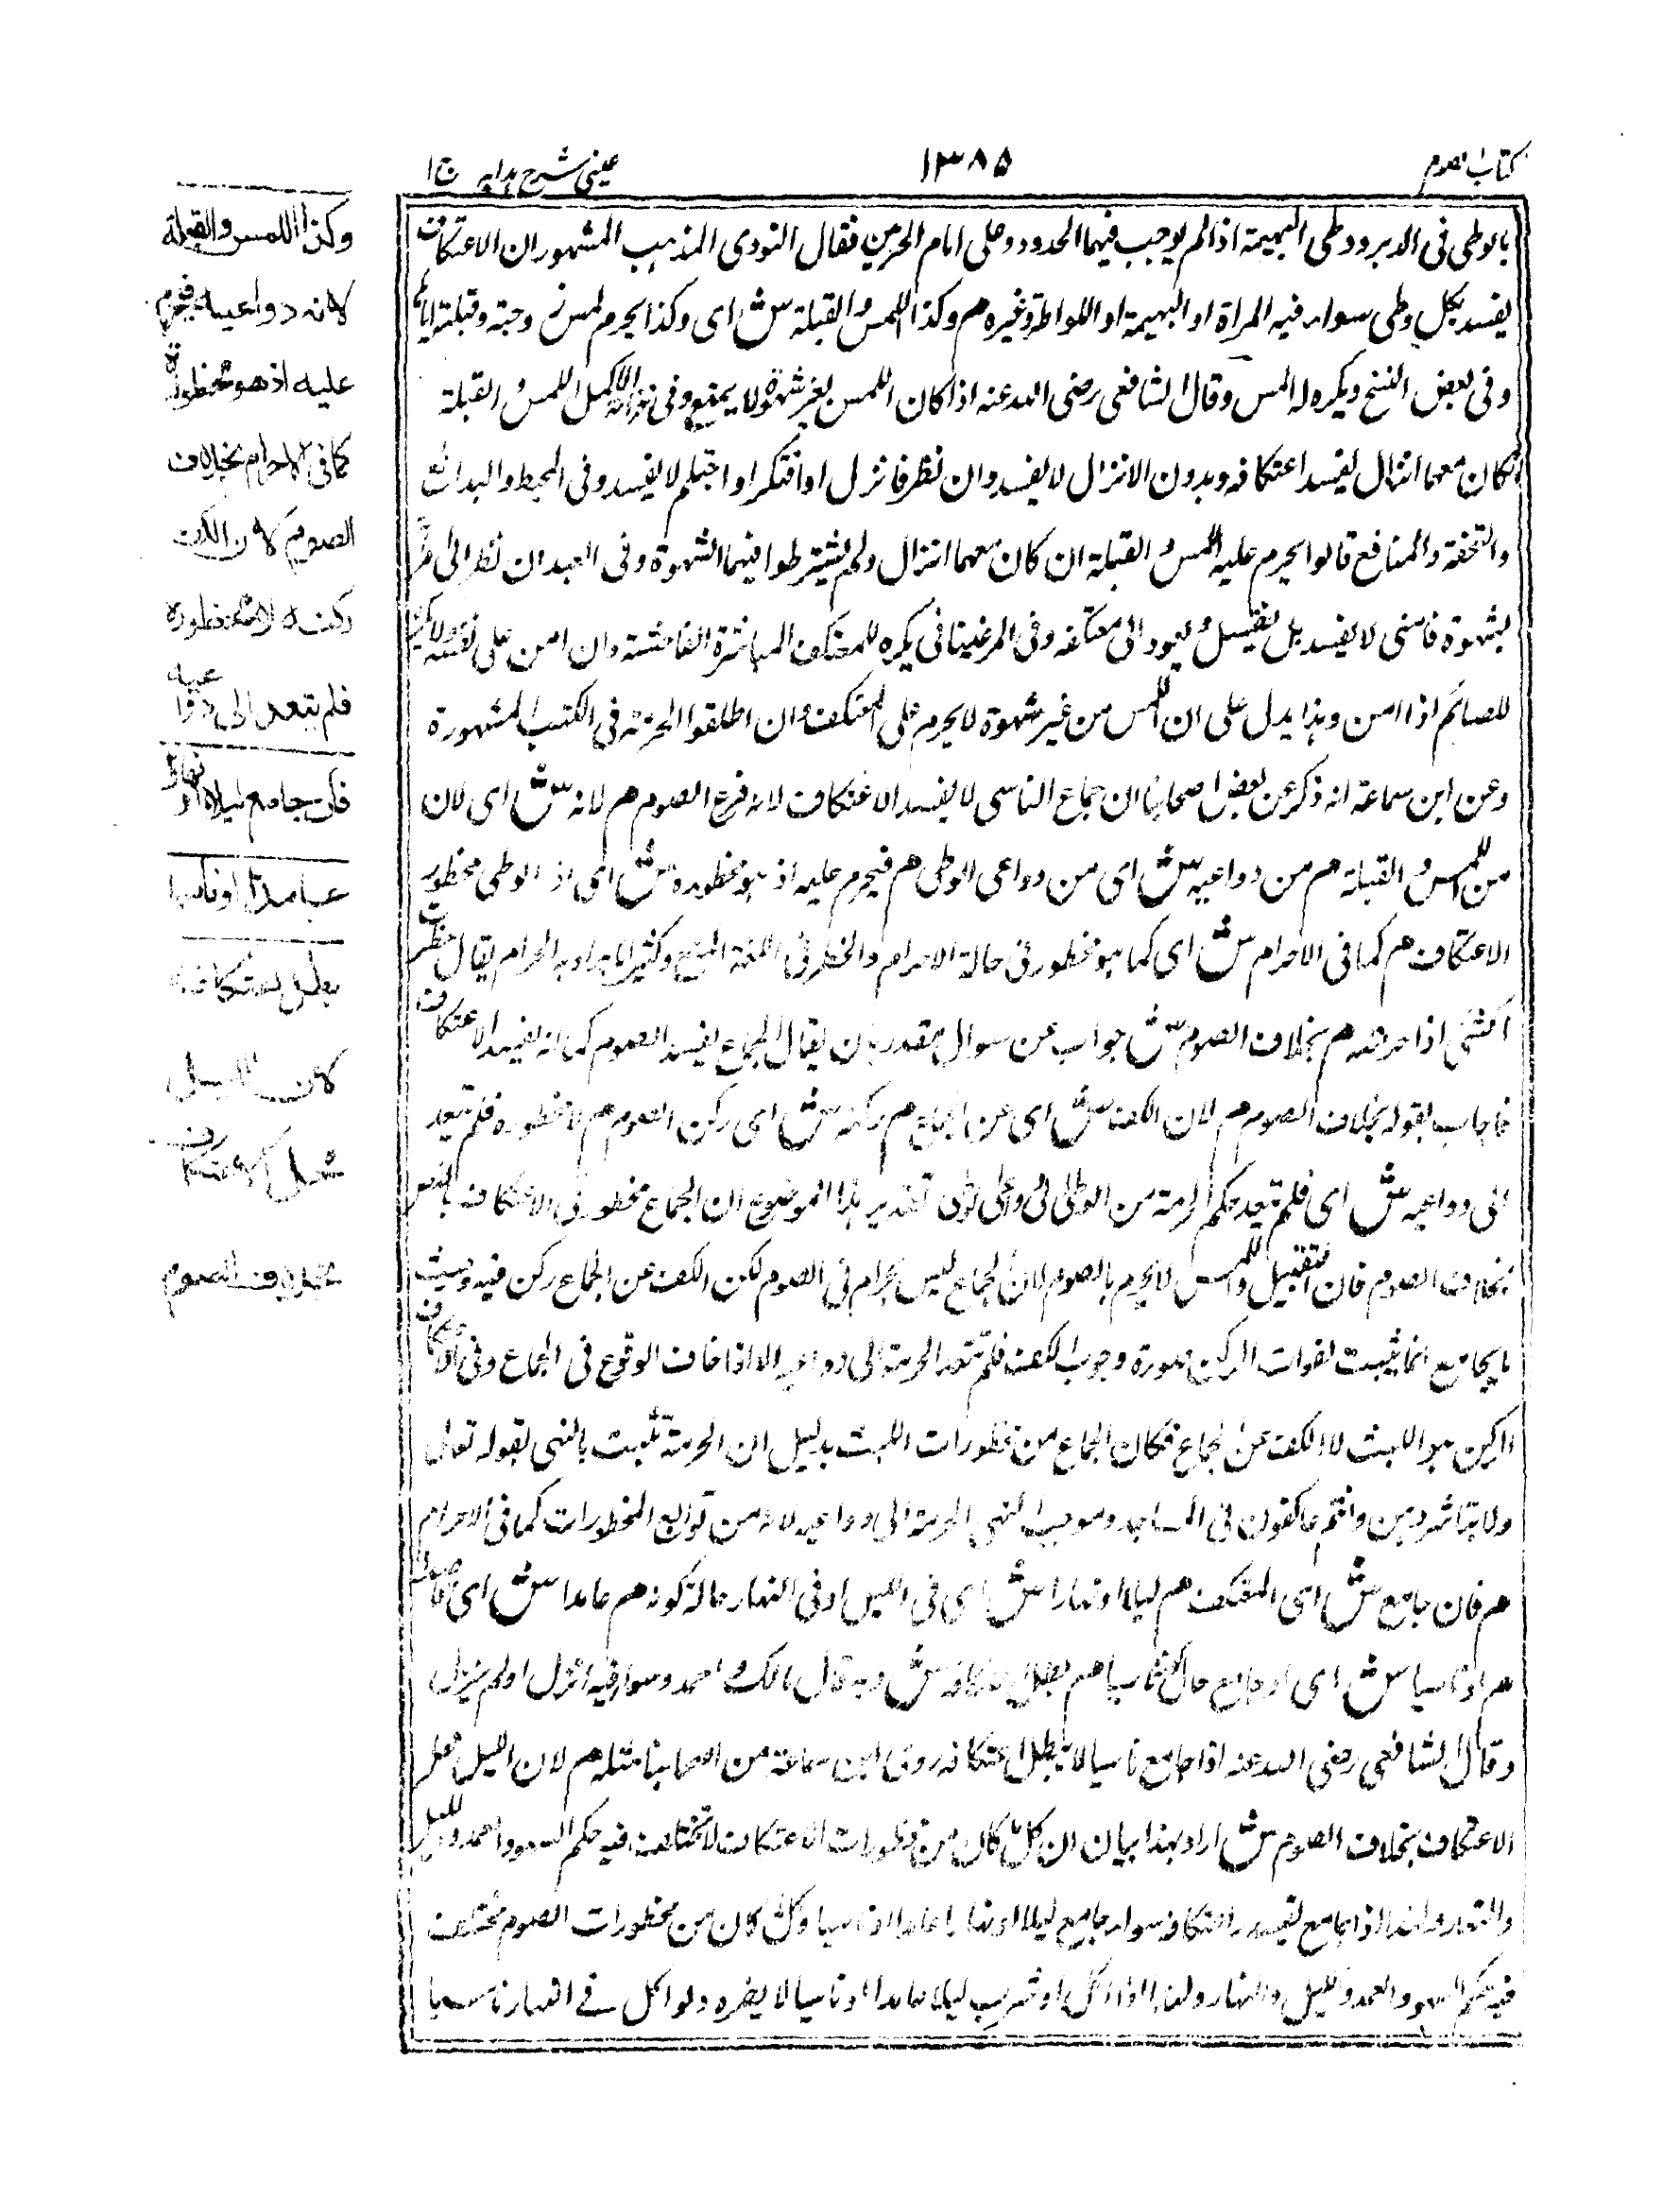 كتاب الصوم
١٣٨٥
عينى شرح هدايه ج ا
بالوطى فى الدبر ووطى البهيمة اذا لم يوجب فيهما الحدود وعلى امام الحرمين فقال النووى المذهب المشهور ان الاعتكاف
يفسد بكل وطى سواء فيه المراة او البهيمة او اللواطة وغيره هم وكذا اللمس والقبلة ش اى وكذا يحرم لمس زوجته وقبلته اياها
وفى بعض النسخ ويكره له المس وقال الشافعى رضى الله عنه اذا كان اللمس بغير شهوة لا يمنع وفى اللمس والقبلة
ان كان معهما انزال يفسد اعتكافه وبدون الانزال لا يفسد وان نظر فانزل او افتكر او احتلم لا يفسد وفى المحيط والبدائع
والتحفة والمنافع قالوا يحرم عليه اللمس والقبلة ان كان معهما انزال ولم يشترطوا فيهما الشهوة وفى ان نظر الى
بشهوة فامنى لا يفسد بل يغتسل ويعود الى معتكفه وفى المرغينانى يكره للمعتكف المباشرة الفاحشة وان امن على نفسه ولا يكره
للصائم اذا امن وهذا يدل على ان اللمس من غير شهوة لا يحرم على المعتكف وان اطلقوا الحرمة فى الكتب المشهورة
وعن ابن سماعة انه ذكر عن بعض اصحابنا ان جماع الناسى لا يفسد الاعتكاف لانه فرع الصوم هم لانه ش اى لان
من اللمس والقبلة هم من دواعيه ش اى من دواعى الوطى هم فيحرم عليه اذ هو محظوره ش اى اذ الوطى محظور
الاعتكاف هم كما فى الاحرام ش اى كما هو محظور فى حالة الاحرام والحظر فى اللغة المنع وكثيرا ما يراد به الحرام يقال حظرت
الشئ اذا حرمته هم بخلاف الصوم ش جواب عن سوال مقدر بان يقال الجماع يفسد الصوم كما انه يفسد الاعتكاف
فاجاب بقوله بخلاف الصوم هم لان الكف ش اى عن الجماع هم ركنه ش اى ركن الصوم هم لا محظوره فلم يتعد
الى دواعيه ش اى فلم يتعد حكم الحرمة من الوطى الى دواعى الوطى تقدير هذا الموضوع ان الجماع محظور فى الاعتكاف بالنص
بخلاف الصوم فان التقبيل واللمس لا يحرم بالصوم لان الجماع ليس بحرام فى الصوم لكن الكف عن الجماع ركن فيه
بالجماع انما يثبت لفوات الركن ضرورة وجوب الكف فلم تتعد الحرمة الى دواعيه الا اذا خاف الوقوع فى الجماع وفى الاعتكاف
الركن هو اللبث لا الكف عن الجماع فكان الجماع من محظورات اللبث بدليل ان الحرمة تثبت بالنهى لقوله تعالى
ولا تباشروهن وانتم عاكفون فى المساجد وموجب النهى الحرمة الى دواعيه لانه من توابع المحظورات كما فى الاحرام
هم فان جامع ش اى المعتكف هم ليلا او نهارا ش اى فى الليل او فى النهار حالة كونه هم عامدا ش اى قاصدا
هم او ناسيا ش اى او جامع حال كونه ناسيا هم بطل اعتكافه ش وبه قال مالك واحمد وسواء فيه انزل او لم ينزل
وقال الشافعى رضى الله عنه اذا جامع ناسيا لا يبطل اعتكافه روى ابن سماعة من اصحابنا مثله هم لان الليل محل
الاعتكاف بخلاف الصوم ش اراد بهذا بيان ان كل ما كان من محظورات الاعتكاف لا تختلف فيه حكم السهو والعمد والليل
والنهار ولهذا اذا جامع يفسد اعتكافه سواء جامع ليلا او نهارا عامدا او ناسيا وكل ما كان من محظورات الصوم يختلف
فيه حكم السهو والعمد والليل والنهار ولهذا اذا اكل او شرب ليلا عامدا او ناسيا لا يضره ولو اكل فى النهار ناسيا
وكذا اللمس والقبلة
لانه دواعيه فيحرم
عليه اذ هو محظوره
كما فى الاحرام بخلاف
الصوم لان الكف
ركنه لا محظوره
فلم يتعد الى دواعيه
فان جامع ليلا او نهارا
عامدا او ناسيا
بطل اعتكافه
لان الليل
محل الاعتكاف
بخلاف الصوم